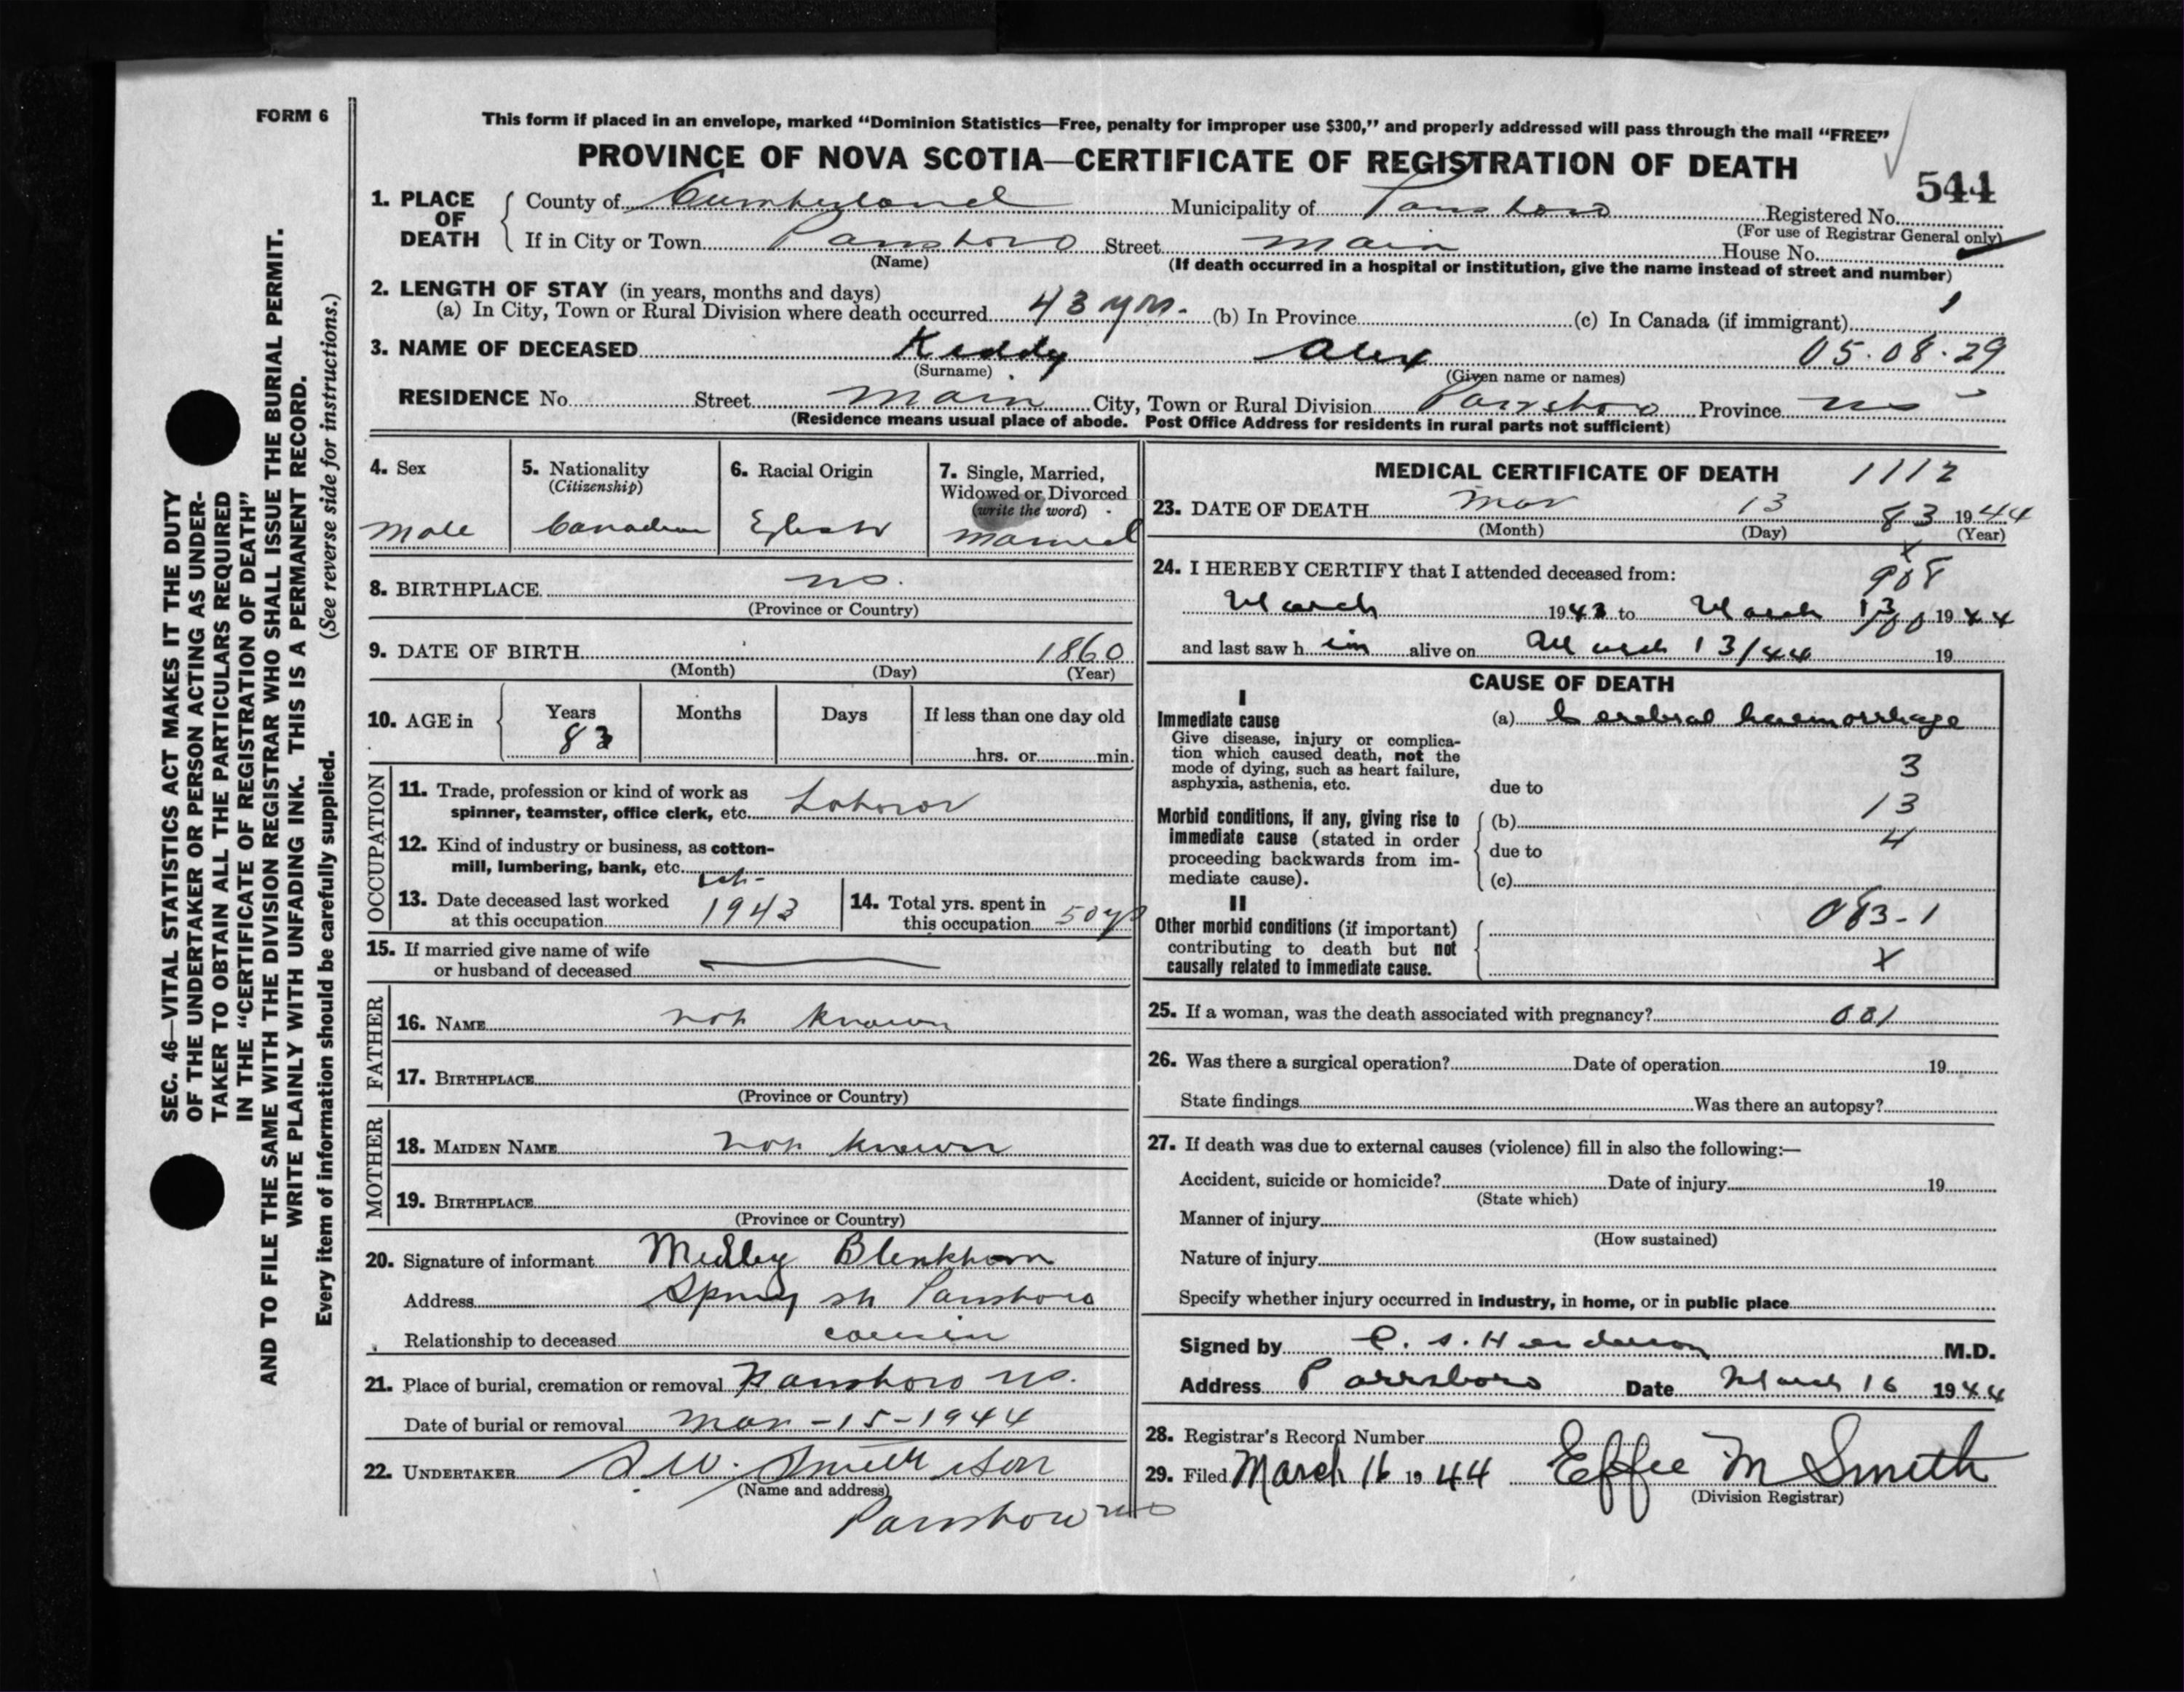 FORM 6
This form if placed in an envelope, marked “Dominion Statistics—Free, penalty for improper use $300,” and properly addressed will pass through the mail “FREE”
PROVINCE OF NOVA SCOTIA—CERTIFICATE OF REGISTRATION OF DEATH
544
1. PLACE OF DEATH
County of Cumberland Municipality of Parrsboro Registered No.
(For use of Registrar General only)
If in City or Town Parrsboro Street Main House No.
(Name)
(If death occurred in a hospital or institution, give the name instead of street and number)
2. LENGTH OF STAY (in years, months and days)
(a) In City, Town or Rural Division where death occurred 43 yrs. (b) In Province (c) In Canada (if immigrant) 1
3. NAME OF DECEASED Keddy Alex 05.08.29
(Surname) (Given name or names)
RESIDENCE No. Street Main City, Town or Rural Division Parrsboro Province NS
(Residence means usual place of abode. Post Office Address for residents in rural parts not sufficient)
4. Sex
Male
5. Nationality
(Citizenship)
Canadian
6. Racial Origin
7. Single, Married,
Widowed or Divorced
(write the word)
Married
8. BIRTHPLACE NS.
(Province or Country)
9. DATE OF BIRTH 1860
(Month) (Day) (Year)
10. AGE in Years Months Days If less than one day old
83
hrs. or min.
OCCUPATION
11. Trade, profession or kind of work as
spinner, teamster, office clerk, etc. Laboror
12. Kind of industry or business, as cotton-
mill, lumbering, bank, etc.
13. Date deceased last worked
at this occupation 1943
14. Total yrs. spent in
this occupation 50 yrs
15. If married give name of wife
or husband of deceased
FATHER
16. NAME not known
17. BIRTHPLACE
(Province or Country)
MOTHER
18. MAIDEN NAME not known
19. BIRTHPLACE
(Province or Country)
20. Signature of informant Medley Blenkhorn
Address Spring St Parrsboro
Relationship to deceased cousin
21. Place of burial, cremation or removal Parrsboro NS.
Date of burial or removal Mar-15-1944
22. UNDERTAKER Smith & Son
(Name and address)
Parrsboro NS
MEDICAL CERTIFICATE OF DEATH 1112
23. DATE OF DEATH Mar 13 83 1944
(Month) (Day) (Year)
24. I HEREBY CERTIFY that I attended deceased from:
908
March 1943 to March 13 1944
and last saw h im alive on March 13/44 19
CAUSE OF DEATH
I
Immediate cause
Give disease, injury or complica-
tion which caused death, not the
mode of dying, such as heart failure,
asphyxia, asthenia, etc.
(a) Cerebral haemorrhage
3
due to
13
Morbid conditions, if any, giving rise to
immediate cause (stated in order
proceeding backwards from im-
mediate cause).
(b)
4
due to
(c)
II
Other morbid conditions (if important)
contributing to death but not
causally related to immediate cause.
083-1
X
25. If a woman, was the death associated with pregnancy? 081
26. Was there a surgical operation? Date of operation 19
State findings Was there an autopsy?
27. If death was due to external causes (violence) fill in also the following:—
Accident, suicide or homicide? Date of injury 19
(State which)
Manner of injury
(How sustained)
Nature of injury
Specify whether injury occurred in industry, in home, or in public place
Signed by C. S. Henderson M.D.
Address Parrsboro Date March 16 1944
28. Registrar's Record Number
29. Filed March 16 1944 Effie M Smith
(Division Registrar)
SEC. 46—VITAL STATISTICS ACT MAKES IT THE DUTY
OF THE UNDERTAKER OR PERSON ACTING AS UNDER-
TAKER TO OBTAIN ALL THE PARTICULARS REQUIRED
IN THE “CERTIFICATE OF REGISTRATION OF DEATH”
AND TO FILE THE SAME WITH THE DIVISION REGISTRAR WHO SHALL ISSUE THE BURIAL PERMIT.
WRITE PLAINLY WITH UNFADING INK. THIS IS A PERMANENT RECORD.
Every item of information should be carefully supplied. (See reverse side for instructions.)